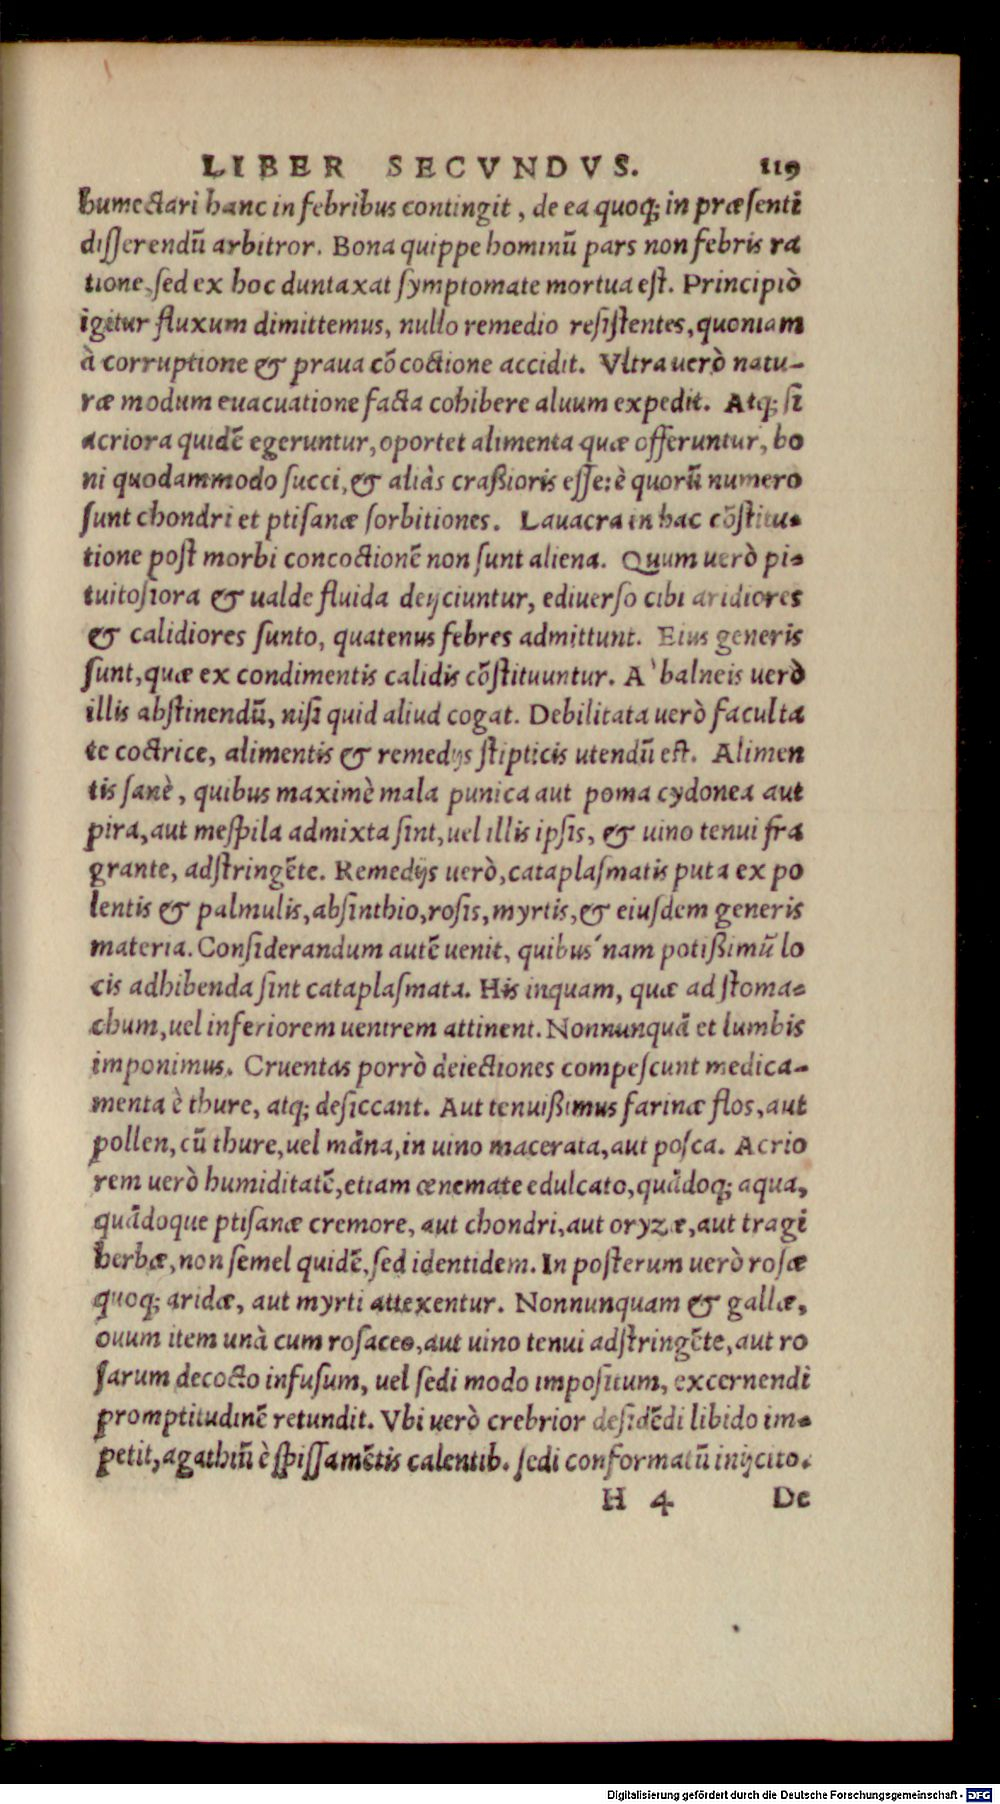 LIBER SECVNDVS. 119
humectari hanc in febribus contingit, de ea quoq; in præsenti
disserendũ arbitror. Bona quippe hominũ pars non febris ra
tione, sed ex hoc duntaxat symptomate mortua est. Principiò
igitur fluxum dimittemus, nullo remedio resistentes, quoniam
à corruptione & praua cõcoctione accidit. Vltra uerò natu-
ræ modum euacuatione facta cohibere aluum expedit. Atq; si
acriora quidẽ egeruntur, oportet alimenta quæ offeruntur, bo
ni quodammodo succi, & aliàs craßioris esse: è quorũ numero
sunt chondri et ptisanæ sorbitiones. Lauacra in hac cõstitu-
tione post morbi concoctionẽ non sunt aliena. Quum uerò pi-
tuitosiora & ualde fluida deijciuntur, ediuerso cibi aridiores
& calidiores sunto, quatenus febres admittunt. Eius generis
sunt, quæ ex condimentis calidis cõstituuntur. A` balneis uerò
illis abstinendũ, nisi quid aliud cogat. Debilitata uerò faculta
te coctrice, alimentis & remedijs stipticis utendũ est. Alimen
tis sanè, quibus maximè mala punica aut poma cydonea aut
pira, aut mespila admixta sint, uel illis ipsis, & uino tenui fra
grante, adstringẽte. Remedijs uerò, cataplasmatis puta ex po
lentis & palmulis, absinthio, rosis, myrtis, & eiusdem generis
materia. Considerandum autẽ uenit, quibus´nam potißimũ lo
cis adhibenda sint cataplasmata. His inquam, quæ ad stoma-
chum, uel inferiorem uentrem attinent. Nonnunquã et lumbis
imponimus. Cruentas porrò deiectiones compescunt medica-
menta è thure, atq; desiccant. Aut tenuißimus farinæ flos, aut
pollen, cũ thure, uel mãna, in uino macerata, aut posca. Acrio
rem uerò humiditatẽ, etiam œnemate edulcato, quãdoq; aqua,
quãdoque ptisanæ cremore, aut chondri, aut oryzæ, aut tragi
herbæ, non semel quidẽ, sed identidem. In posterum uerò rosæ
quoq; aridæ, aut myrti attexentur. Nonnunquam & gallæ,
ouum item unà cum rosaceo, aut uino tenui adstringẽte, aut ro
sarum decocto infusum, uel sedi modo impositum, excernendi
promptitudinẽ retundit. Vbi uerò crebrior desidẽdi libido im-
petit, agathiũ è spissamẽtis calentib. sedi conformatũ inijcito.
H 4 De
Digitalisierung gefördert durch die Deutsche Forschungsgemeinschaft - DFG